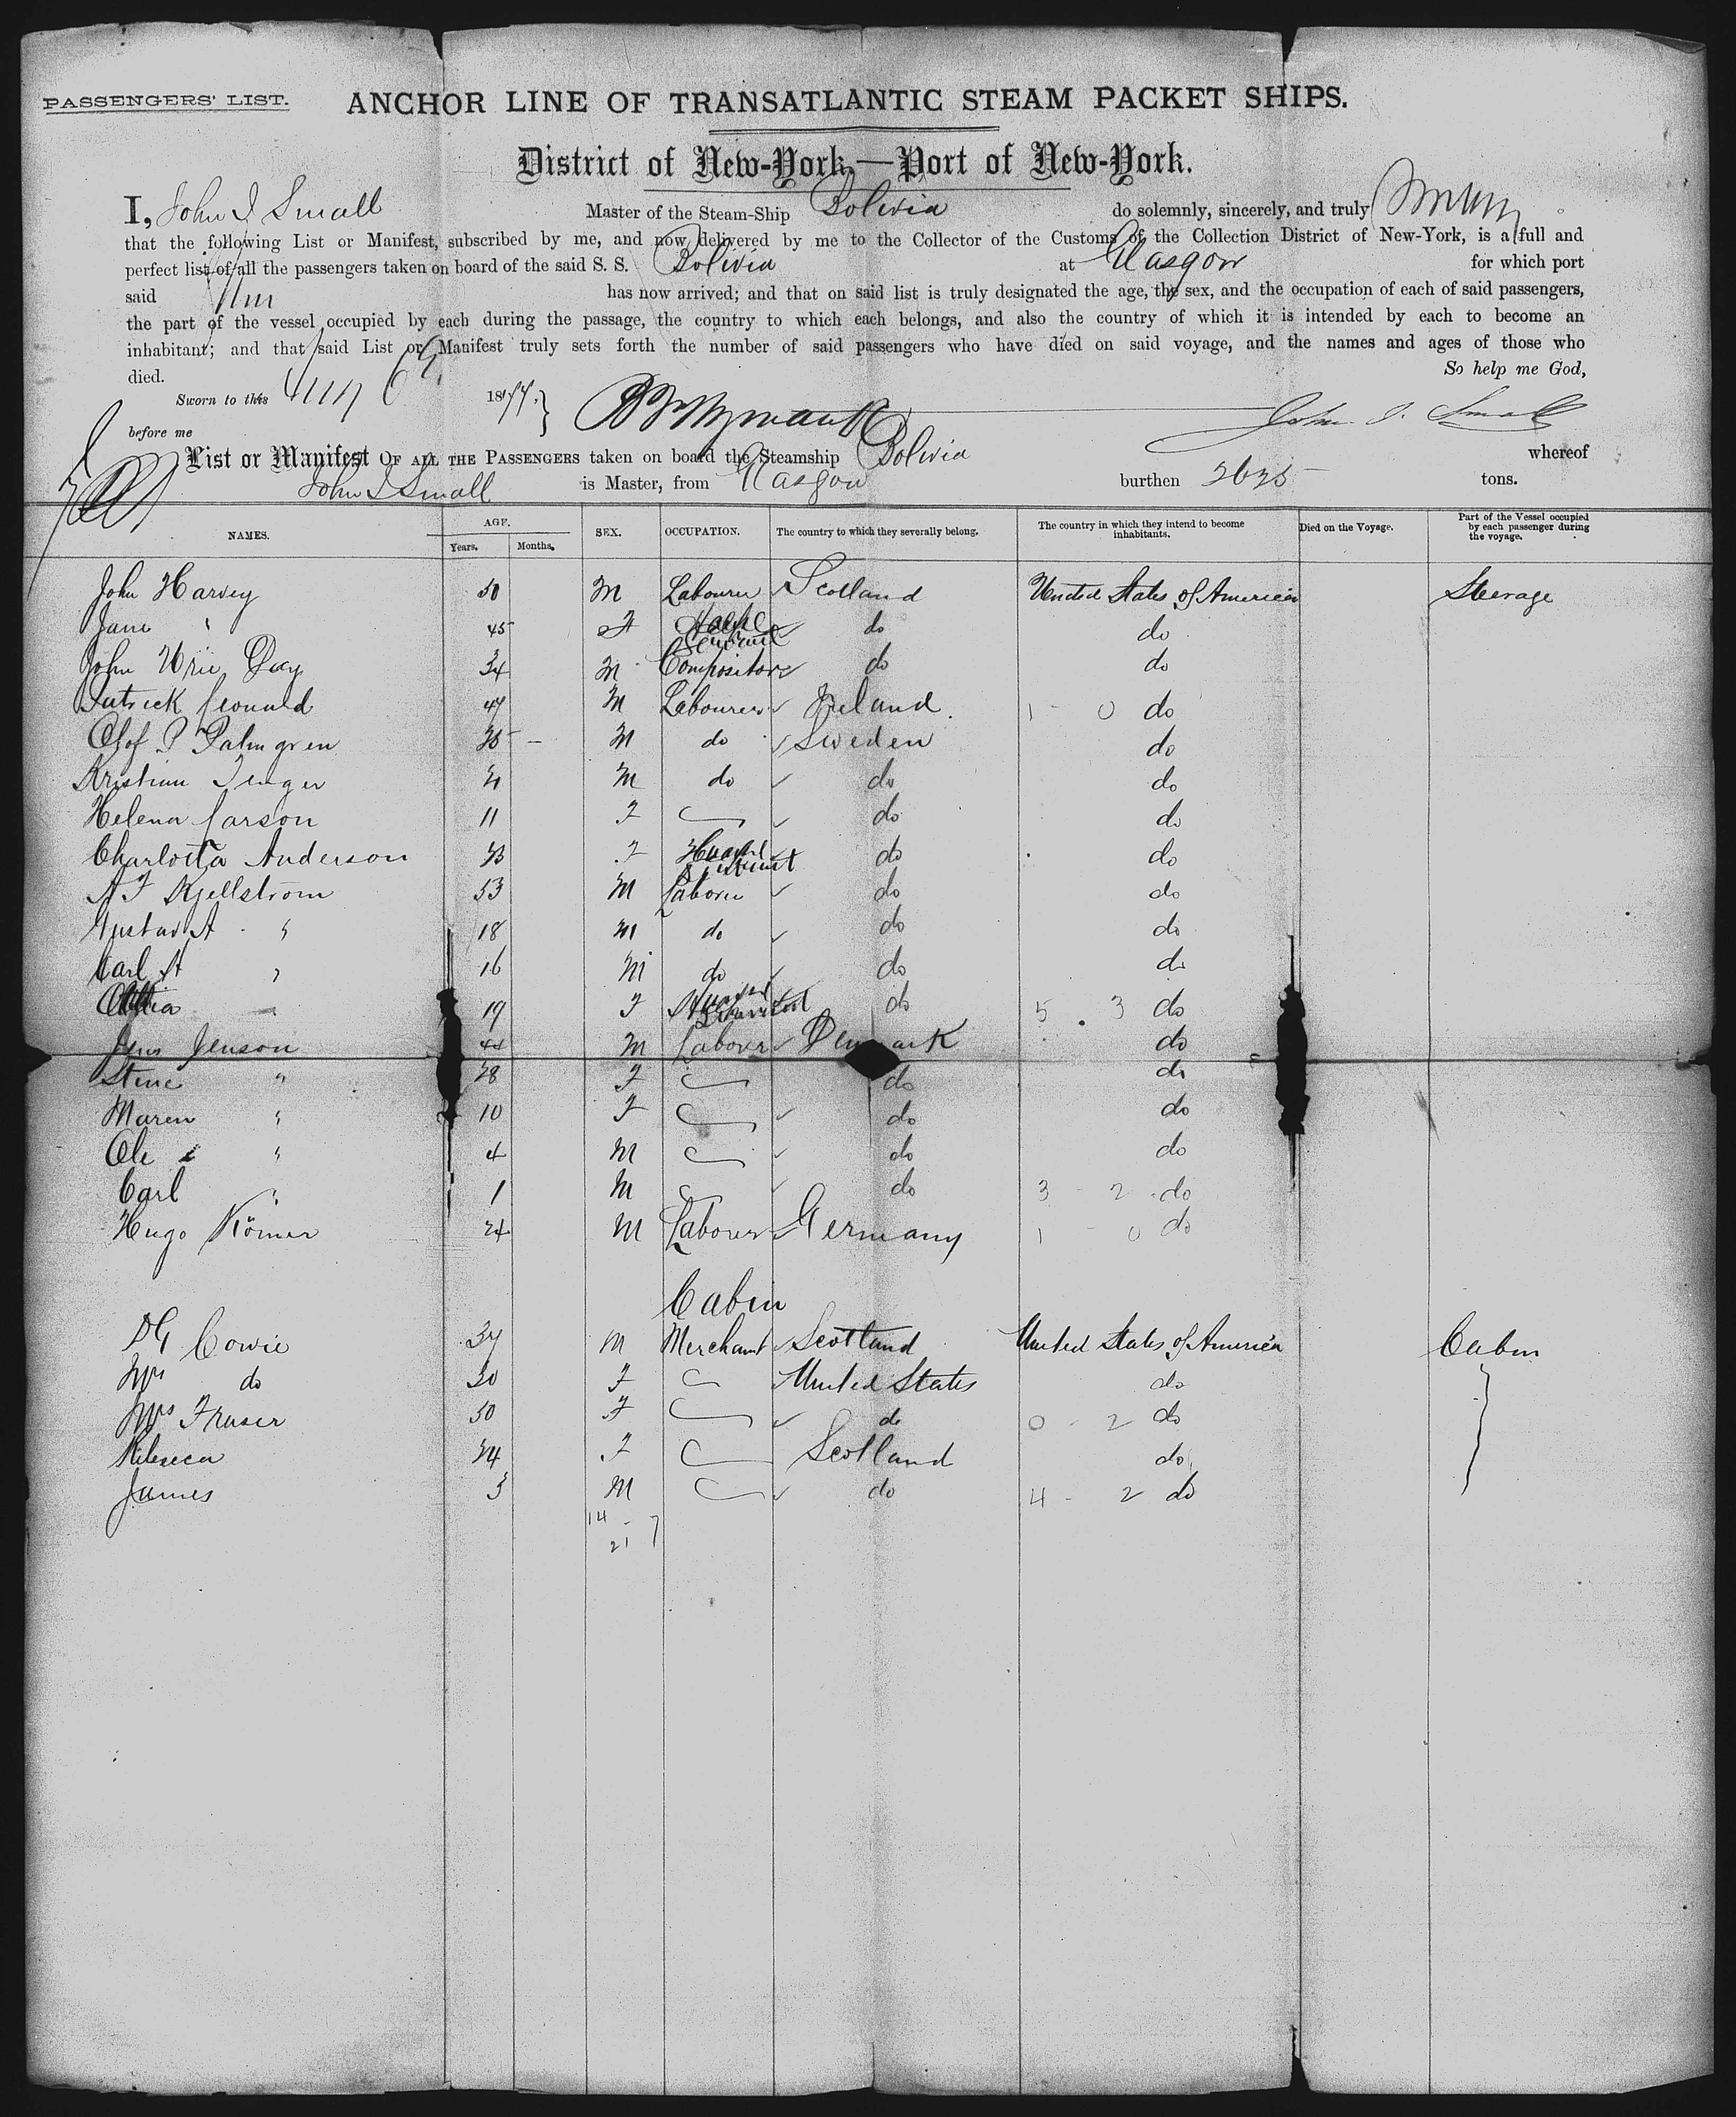 PASSENGERS' LIST. ANCHOR LINE OF TRANSATLANTIC STEAM PACKET SHIPS.
District of New-York,—Port of New-York.
I, John I Small Master of the Steam-Ship Bolivia do solemnly, sincerely, and truly
that the following List or Manifest, subscribed by me, and now delivered by me to the Collector of the Customs of the Collection District of New-York, is a full and
perfect list of all the passengers taken on board of the said S. S. Bolivia at Glasgow for which port
said has now arrived; and that on said list is truly designated the age, the sex, and the occupation of each of said passengers,
the part of the vessel occupied by each during the passage, the country to which each belongs, and also the country of which it is intended by each to become an
inhabitant; and that said List or Manifest truly sets forth the number of said passengers who have died on said voyage, and the names and ages of those who
died. So help me God,
Sworn to this 1877.
before me John I. Small
List or Manifest OF ALL THE PASSENGERS taken on board the Steamship Bolivia whereof
John I Small is Master, from Glasgow burthen 2625 tons.
NAMES. AGE. Years. Months. SEX. OCCUPATION. The country to which they severally belong. The country in which they intend to become inhabitants. Died on the Voyage. Part of the Vessel occupied by each passenger during the voyage.
John Harvey 50 M Labourer Scotland United States of America Steerage
Jane " 45 F Servant do do
John Urie Day 34 M Compositor do do
Patrick 47 M Labourer Ireland 1 - 0 do
Olof P Palmgren 36 - M do Sweden do
Kristian M do do do
Helena Carson 11 F do do
Charlotta Anderson F do do
A F Kjellström 53 M Laborer do do
Gustav A " 18 M do do do
Carl A " 16 M do do do
19 F do 5 . 3 do
Jens Jenson 44 M Laborer Denmark do
Stine " 38 F do do
Maren " 10 F do do
Ole " 4 M do do
Carl " 1 M do 3 - 2 do
Hugo Körner 24 M Laborer Germany 1 - 0 do
Cabin
DG Cowie 37 M Merchant Scotland United States of America Cabin
Mrs do 30 F United States do
Mrs Fraser 50 F do 0 - 2 do
Rebecca 34 F Scotland do
James 3 M do 4 - 2 do
14 - 7
21